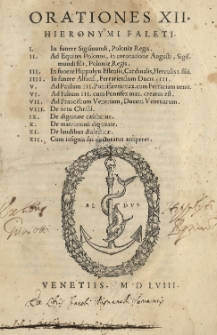 ORATIONES XII.
HIERONYMI FALETI.
I. In funere Sigismundi, Poloniæ Regis.
II. Ad Equites Polonos, in coronatione Augusti, Sigis-
mundi fili, Poloniæ Regis.
III. In funere Hippolyti Estensis, Cardinalis, Herculis I. filii.
IIII. In funere Alfonsi, Ferrariensium Ducis IIII.
V. Ad Paulum III. Pontificem max. cum Ferrariam venit.
VI. Ad Iulium III. cum Pontifex max. creatus est.
VII. Ad Franciscum Venerium, Ducem Venetiarum.
VIII. De ortu Christi.
IX. De dignitate
X. De matrimonii dignitate.
XI. De laudibus dialecticæ.
XII. Cum insignia sui doctoratus acciperet.
AL DVS
VENETIIS, M D LVIII.
Ex Libris